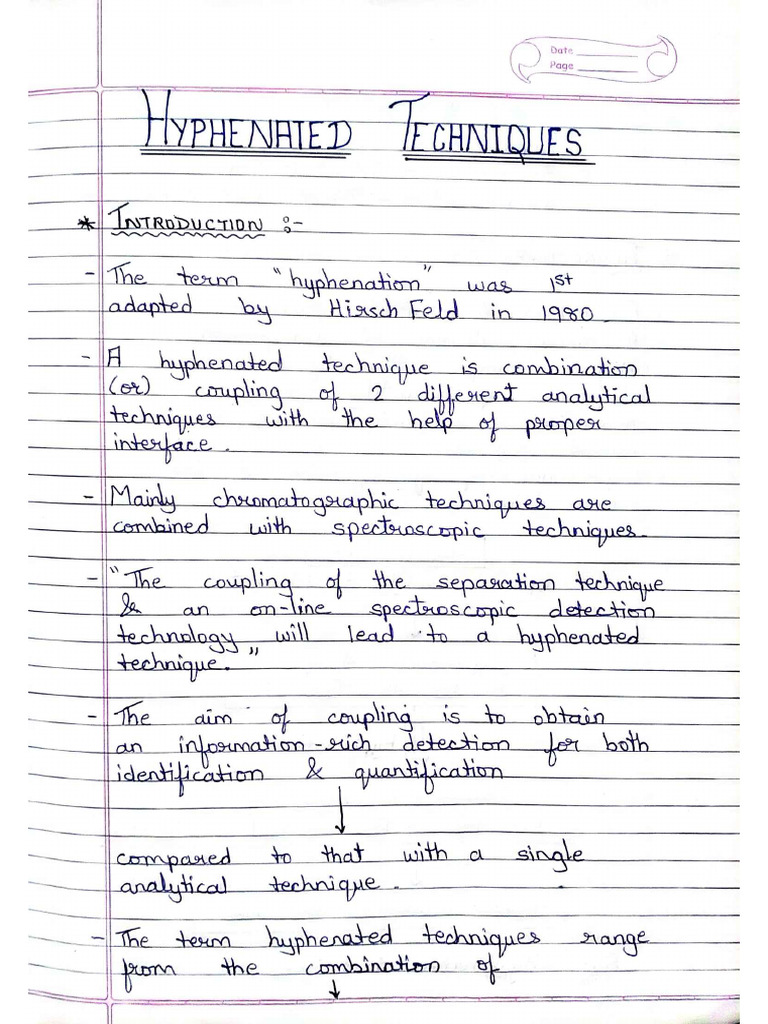 Date
Page
HYPHENATED TECHNIQUES
* INTRODUCTION :-
- The term "hyphenation" was 1st
adapted by Hirsch Feld in 1980.
- A hyphenated technique is combination
(or) coupling of 2 different analytical
techniques with the help of proper
interface.
- Mainly chromatographic techniques are
combined with spectroscopic techniques.
- "The coupling of the separation technique
& an on-line spectroscopic detection
technology will lead to a hyphenated
technique."
- The aim of coupling is to obtain
an information-rich detection for both
identification & quantification
↓
compared to that with a single
analytical technique.
- The term hyphenated techniques range
from the combination of
↓